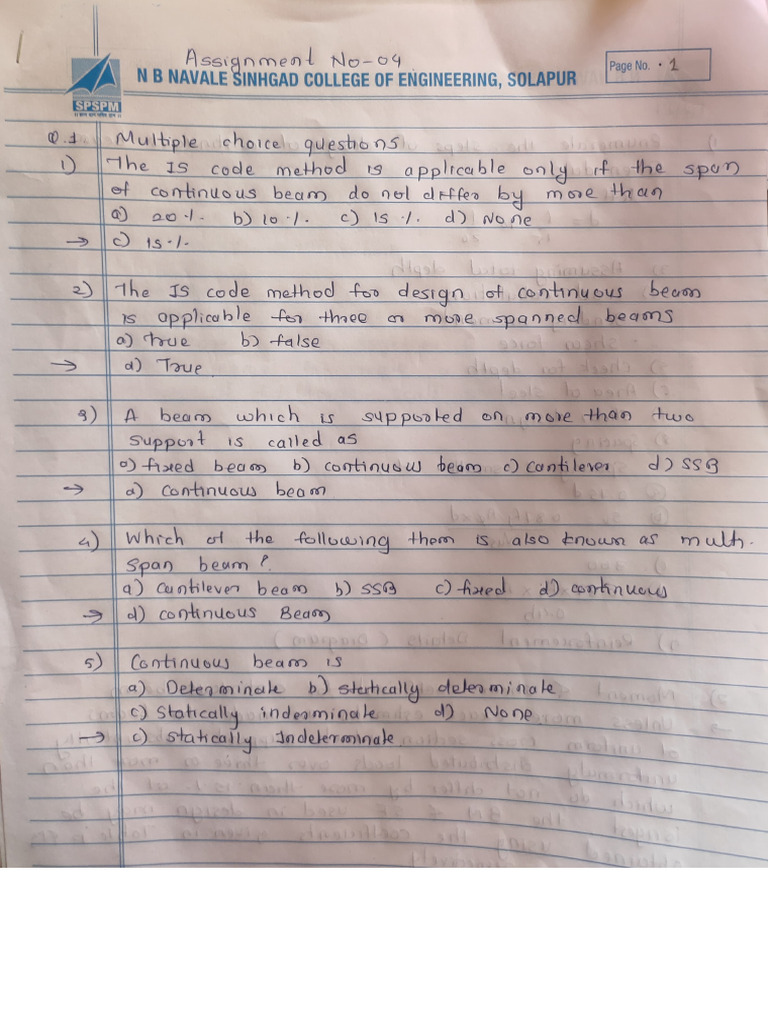 Assignment No-04
N B NAVALE SINHGAD COLLEGE OF ENGINEERING, SOLAPUR
Page No. 1
SPSPM
Q.1 Multiple choice questions
1) The IS code method is applicable only if the span
of continuous beam do not differ by more than
a) 20 % b) 10 % c) 15 % d) None
→ c) 15 %
2) The IS code method for design of continuous beam
is applicable for three or more spanned beams
a) True b) false
→ a) True
3) A beam which is supported on more than two
support is called as
a) fixed beam b) continuous beam c) cantilever d) SSB
→ d) continuous beam
4) Which of the following them is also known as multi-
span beam?
a) Cantilever beam b) SSB c) fixed d) continuous
→ d) continuous Beam
5) Continuous beam is
a) Determinate b) statically determinate
c) Statically inderminate d) None
→ c) statically Indeterminate